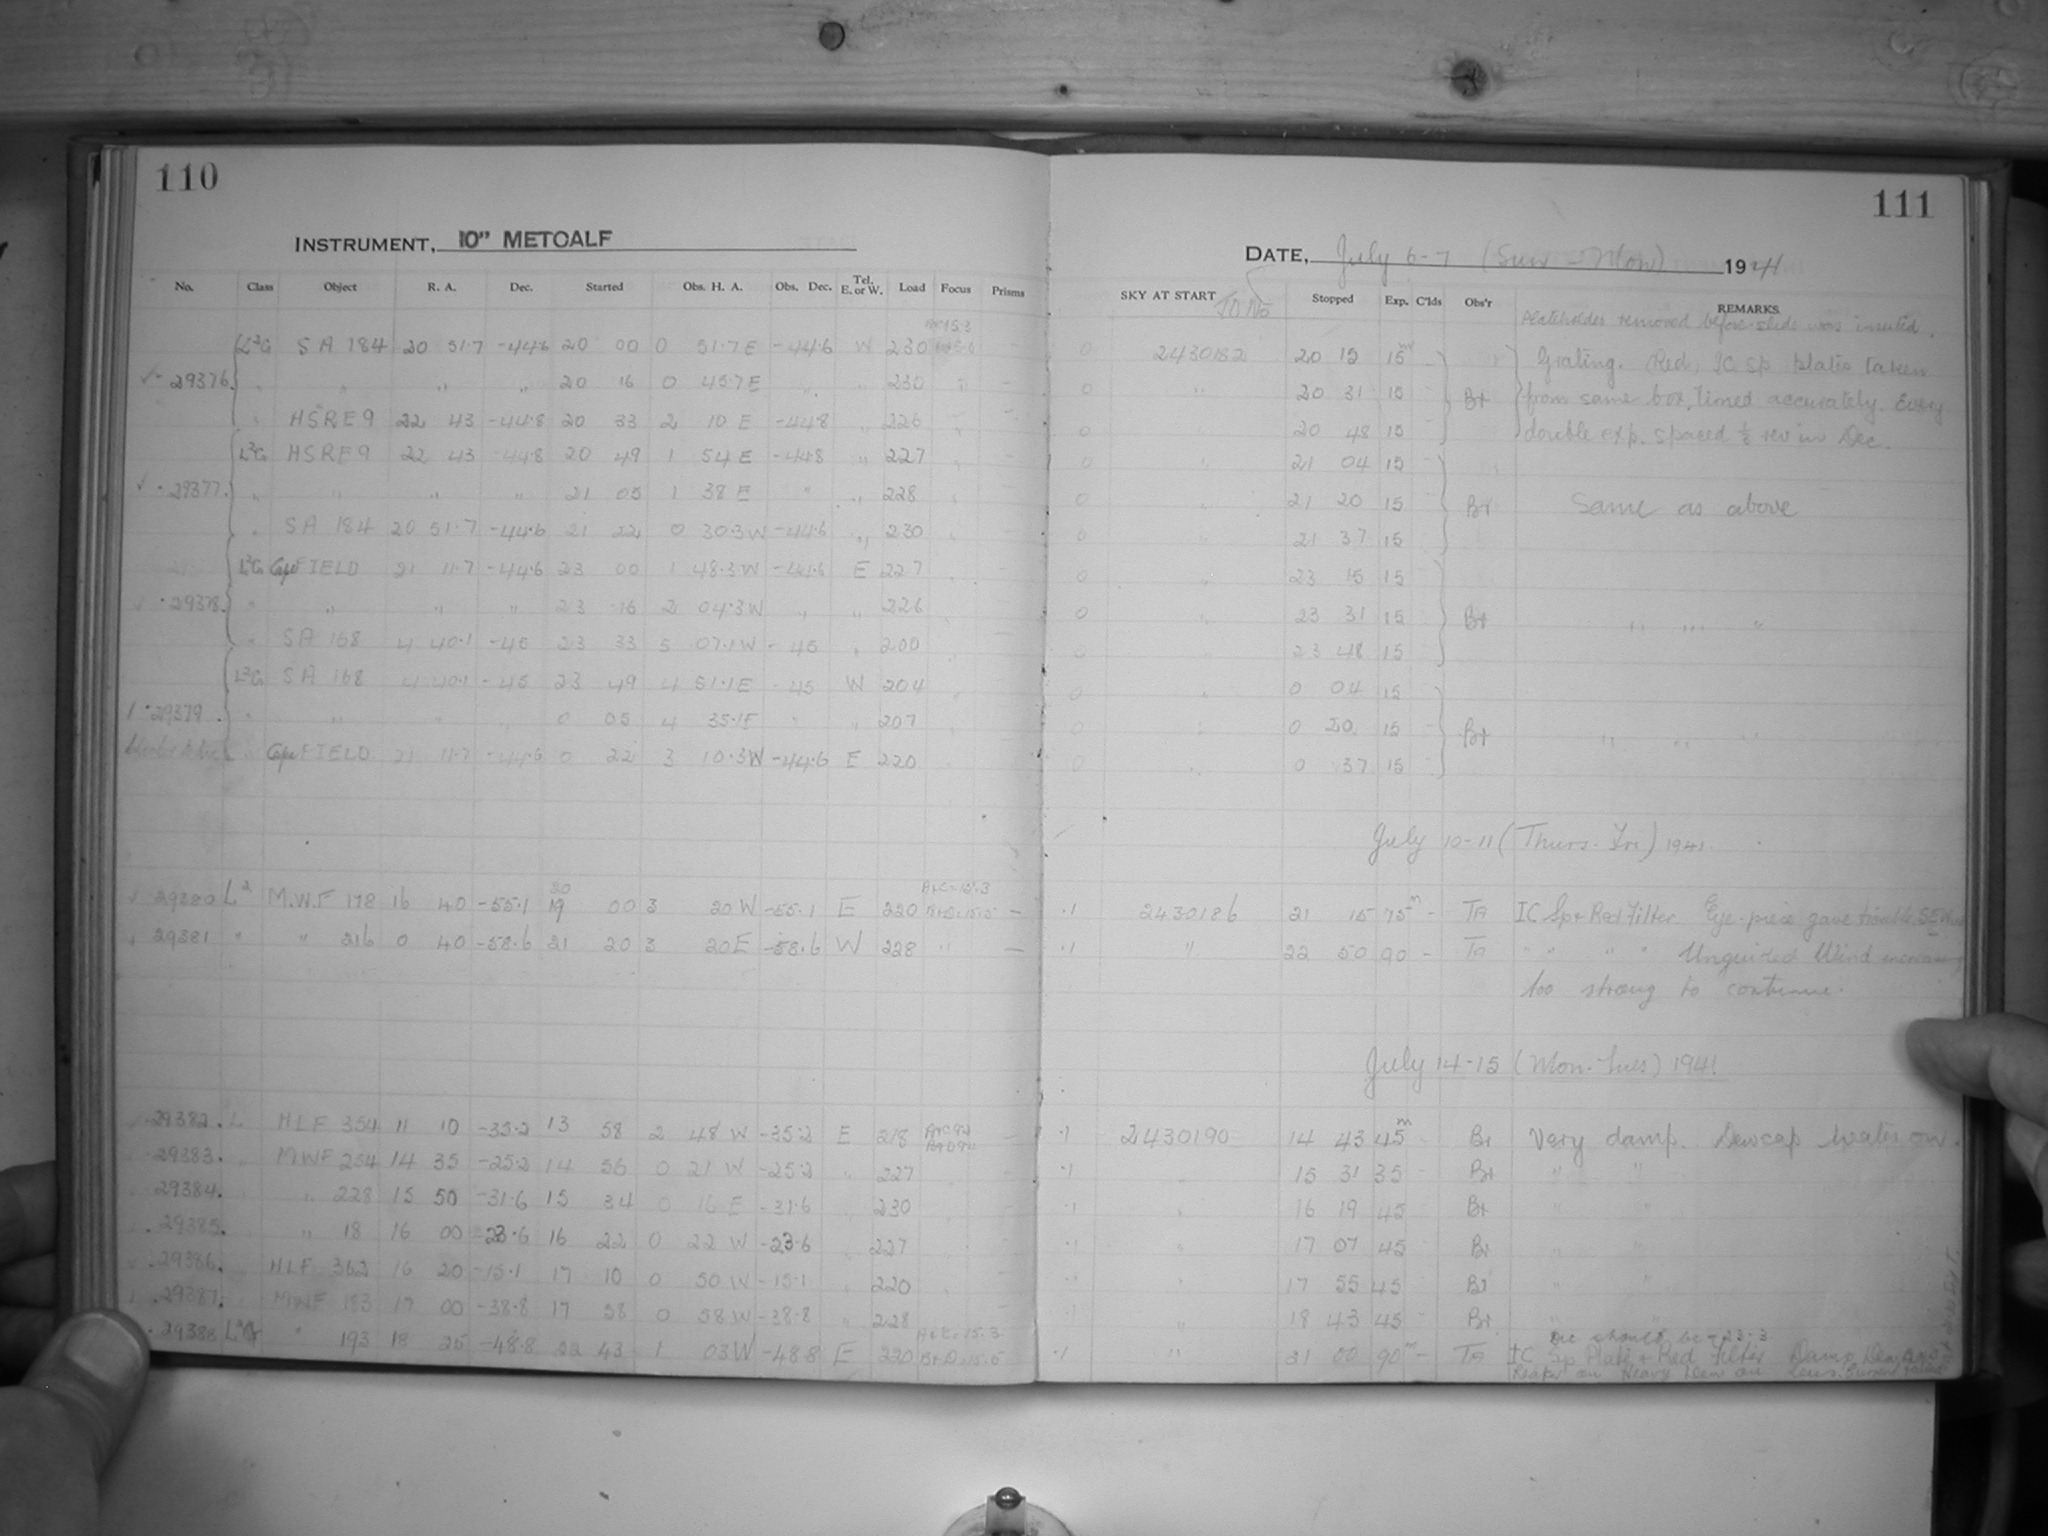 110
INSTRUMENT, 10" METCALF
No. Class Object R. A. Dec. Started Obs. H. A. Obs. Dec. Tel. E. or W. Load Focus Prisms
SA 184 20 51.7 -44.6 20 00 0 51.7E -44.6 W 230
29376 " " " 20 16 0 45.7E " " 230
" HSRE9 22 43 -44.8 20 33 2 10 E -44.8 " 226
HSRE9 22 43 -44.8 20 49 1 54 E -44.8 " 227
29377 " " " " 21 05 1 38 E " " 228
" SA 184 20 51.7 -44.6 21 22 0 30.3W -44.6 " 230
Cape FIELD 21 11.7 -44.6 23 00 1 48.3W -44.6 E 227
29378 " " " " 23 16 2 04.3W " " 226
" SA 168 4 40.1 -45 23 33 5 07.1W -45 " 200
SA 168 4 40.1 -45 23 49 4 51.1E -45 W 204
29379 " " " " 0 05 4 35.1E " " 207
Cape FIELD 21 11.7 -44.6 0 22 3 10.3W -44.6 E 220
29380 L² M.W.F 178 16 40 -55.1 19 00 3 20 W -55.1 E 220 A+C=15.3 —
20
29381 " " 216 0 40 -58.6 21 20 3 20E -58.6 W 228 " —
29382. L HLF 354 11 10 -35.2 13 58 2 48 W -35.2 E 218
29383. " MWF 254 14 35 -25.2 14 56 0 21 W -25.2 " 227
29384. " 228 15 50 -31.6 15 34 0 16 E -31.6 230
29385. " 18 16 00 -23.6 16 22 0 22 W -23.6 " 227
29386. HLF 362 16 20 -15.1 17 10 0 50 W -15.1 " 220
29387. MWF 183 17 00 -38.8 17 58 0 58 W -38.8 " 228
29388 " 193 18 25 -48.8 22 43 1 03W -48.8 E 220 A+C=15.3
111
DATE, July 6-7 (Sun - Mon) 1941
SKY AT START Stopped Exp. C'lds Obs'r REMARKS
J D No
Plateholder removed before slide was inserted.
0 2430182 20 15 15ᵐ Grating. Red, IC Sp plates taken
0 " 20 31 15 Br from same box, timed accurately. Every
0 20 48 15 double exp. spaced ½ rev in Dec.
0 " 21 04 15
0 " 21 20 15 Br Same as above
0 " 21 37 15
0 " 23 15 15
0 " 23 31 15 Br " " "
0 " 23 48 15
0 " 0 04 15
0 " 0 20 15 Br " " "
0 " 0 37 15
July 10-11 (Thurs-Fri) 1941.
.1 2430186 21 15 75ᵐ - TA IC Sp + Red Filter. Eye-piece gave trouble. SE Wind
.1 " 22 50 90 - TA " " " " Unguided Wind increasing
too strong to continue.
July 14-15 (Mon-Tues) 1941
.1 2430190 14 43 45ᵐ Br Very damp. Dewcap heater on.
.1 " 15 31 35 Br " "
.1 " 16 19 45 Br " "
.1 " 17 07 45 Br " "
" 17 55 45 Br " "
" 18 43 45 Br "
Dec should be -23.3
.1 " 21 00 90ᵐ - TA IC Sp Plate + Red Filter Damp
Heater on Heavy Dew on Lens.